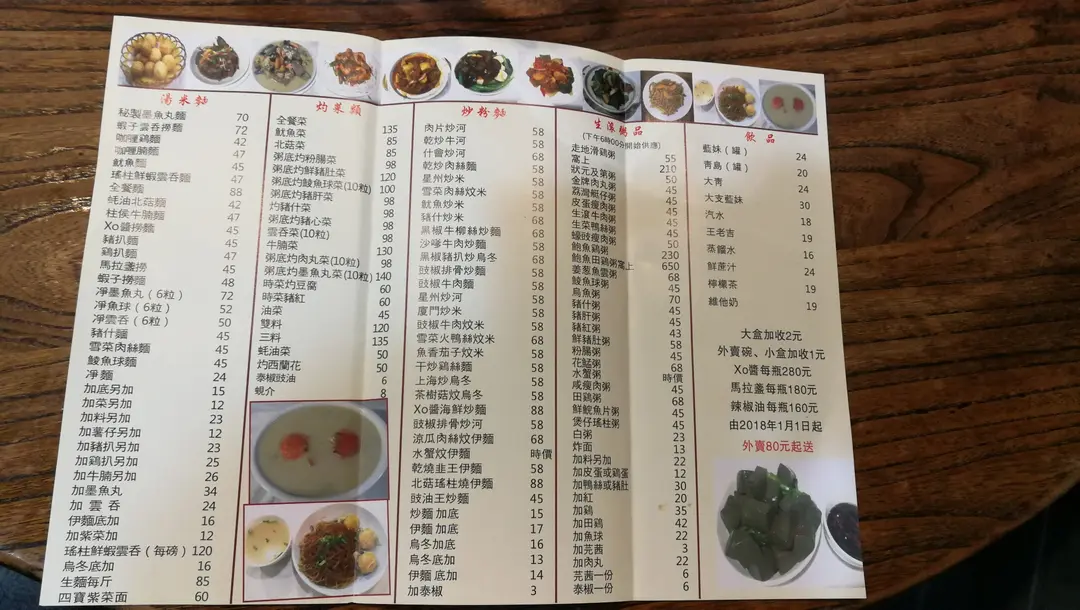 湯米麵
秘製墨魚丸麵 70
蝦子雲吞撈麵 72
咖喱鷄麵 42
咖喱腩麵 47
魷魚麵 45
瑤柱鮮蝦雲吞麵 47
全餐麵 88
蚝油北菇麵 42
柱侯牛腩麵 47
Xo醬撈麵 45
豬扒麵 45
鷄扒麵 47
馬拉盞撈 45
蝦子撈麵 48
淨墨魚丸（6粒） 72
淨魚球（6粒） 52
淨雲吞（6粒） 50
豬什麵 45
雪菜肉絲麵 45
鯪魚球麵 45
淨麵 24
加底另加 15
加菜另加 12
加料另加 23
加薯仔另加 12
加豬扒另加 23
加鷄扒另加 25
加牛腩另加 26
加墨魚丸 34
加 雲 吞 24
伊麵底加 16
加紫菜加 12
瑤柱鮮蝦雲吞（每磅）120
烏冬底加 16
生麵每斤 85
四寶紫菜面 60
灼菜類
全餐菜 135
魷魚菜 85
北菇菜 85
粥底灼粉腸菜 98
粥底灼鮮豬肚菜 120
粥底灼鯪魚球菜(10粒) 100
粥底灼豬肝菜 98
灼豬什菜 98
粥底灼豬心菜 98
雲吞菜(10粒) 98
牛腩菜 130
粥底灼肉丸菜(10粒) 98
粥底灼墨魚丸菜(10粒) 140
時菜灼豆腐 60
時菜豬紅 60
油菜 45
雙料 120
三料 135
蚝油菜 50
灼西蘭花 50
泰椒豉油 6
蜆介 8
炒粉麵
肉片炒河 58
乾炒牛河 58
什會炒河 68
乾炒肉絲麵 58
星州炒米 58
雪菜肉絲炆米 58
魷魚炒米 58
豬什炒米 68
黑椒牛柳絲炒麵 68
沙嗲牛肉炒麵 58
黑椒豬扒炒烏冬 68
豉椒排骨炒麵 58
豉椒牛肉麵 58
星州炒河 58
廈門炒米 58
豉椒牛肉炆米 58
雪菜火鴨絲炆米 58
魚香茄子炆米 58
干炒鷄絲麵 58
上海炒烏冬 58
茶樹菇炆烏冬 58
Xo醬海鮮炒麵 88
豉椒排骨炒麵 58
涼瓜肉絲炆伊麵 68
水蟹炆伊麵 時價
乾燒韭王伊麵 58
北菇瑤柱燒伊麵 88
豉油王炒麵 45
炒麵 加底 15
伊麵 加底 17
烏冬加底 16
烏冬底加 13
伊麵 底加 14
加泰椒 3
生滾粥品
(下午6時00分開始供應)
走地滑鷄粥 55
窩上 210
狀元及第粥 50
金牌肉丸粥 45
荔灣艇仔粥 45
皮蛋瘦肉粥 45
生滾牛肉粥 45
生菜鴨絲粥 45
蠔豉瘦肉粥 50
鮑魚鷄粥 230
鮑魚田鷄粥窩上 650
姜葱魚雲粥 68
鯪魚球粥 45
烏魚粥 70
豬什粥 45
豬肝粥 45
豬紅粥 43
鮮豬肚粥 58
粉腸粥 45
花鯭粥 68
水蟹粥 時價
咸瘦肉粥 45
田鷄粥 68
鮮鯇魚片粥 45
煲仔瑤柱粥 45
白粥 23
炸面 13
加料另加 22
加皮蛋或鷄蛋 12
加鴨絲或豬肚 30
加紅 20
加鷄 35
加田鷄 42
加魚球 22
加芫茜 3
加肉丸 22
芫茜一份 6
泰椒一份 6
飲品
藍妹（罐） 24
青島（罐） 20
大青 24
大支藍妹 30
汽水 18
王老吉 19
蒸餾水 16
鮮蔗汁 24
檸檬茶 19
維他奶 19
大盒加收2元
外賣碗、小盒加收1元
Xo醬每瓶280元
馬拉盞每瓶180元
辣椒油每瓶160元
由2018年1月1日起
外賣80元起送